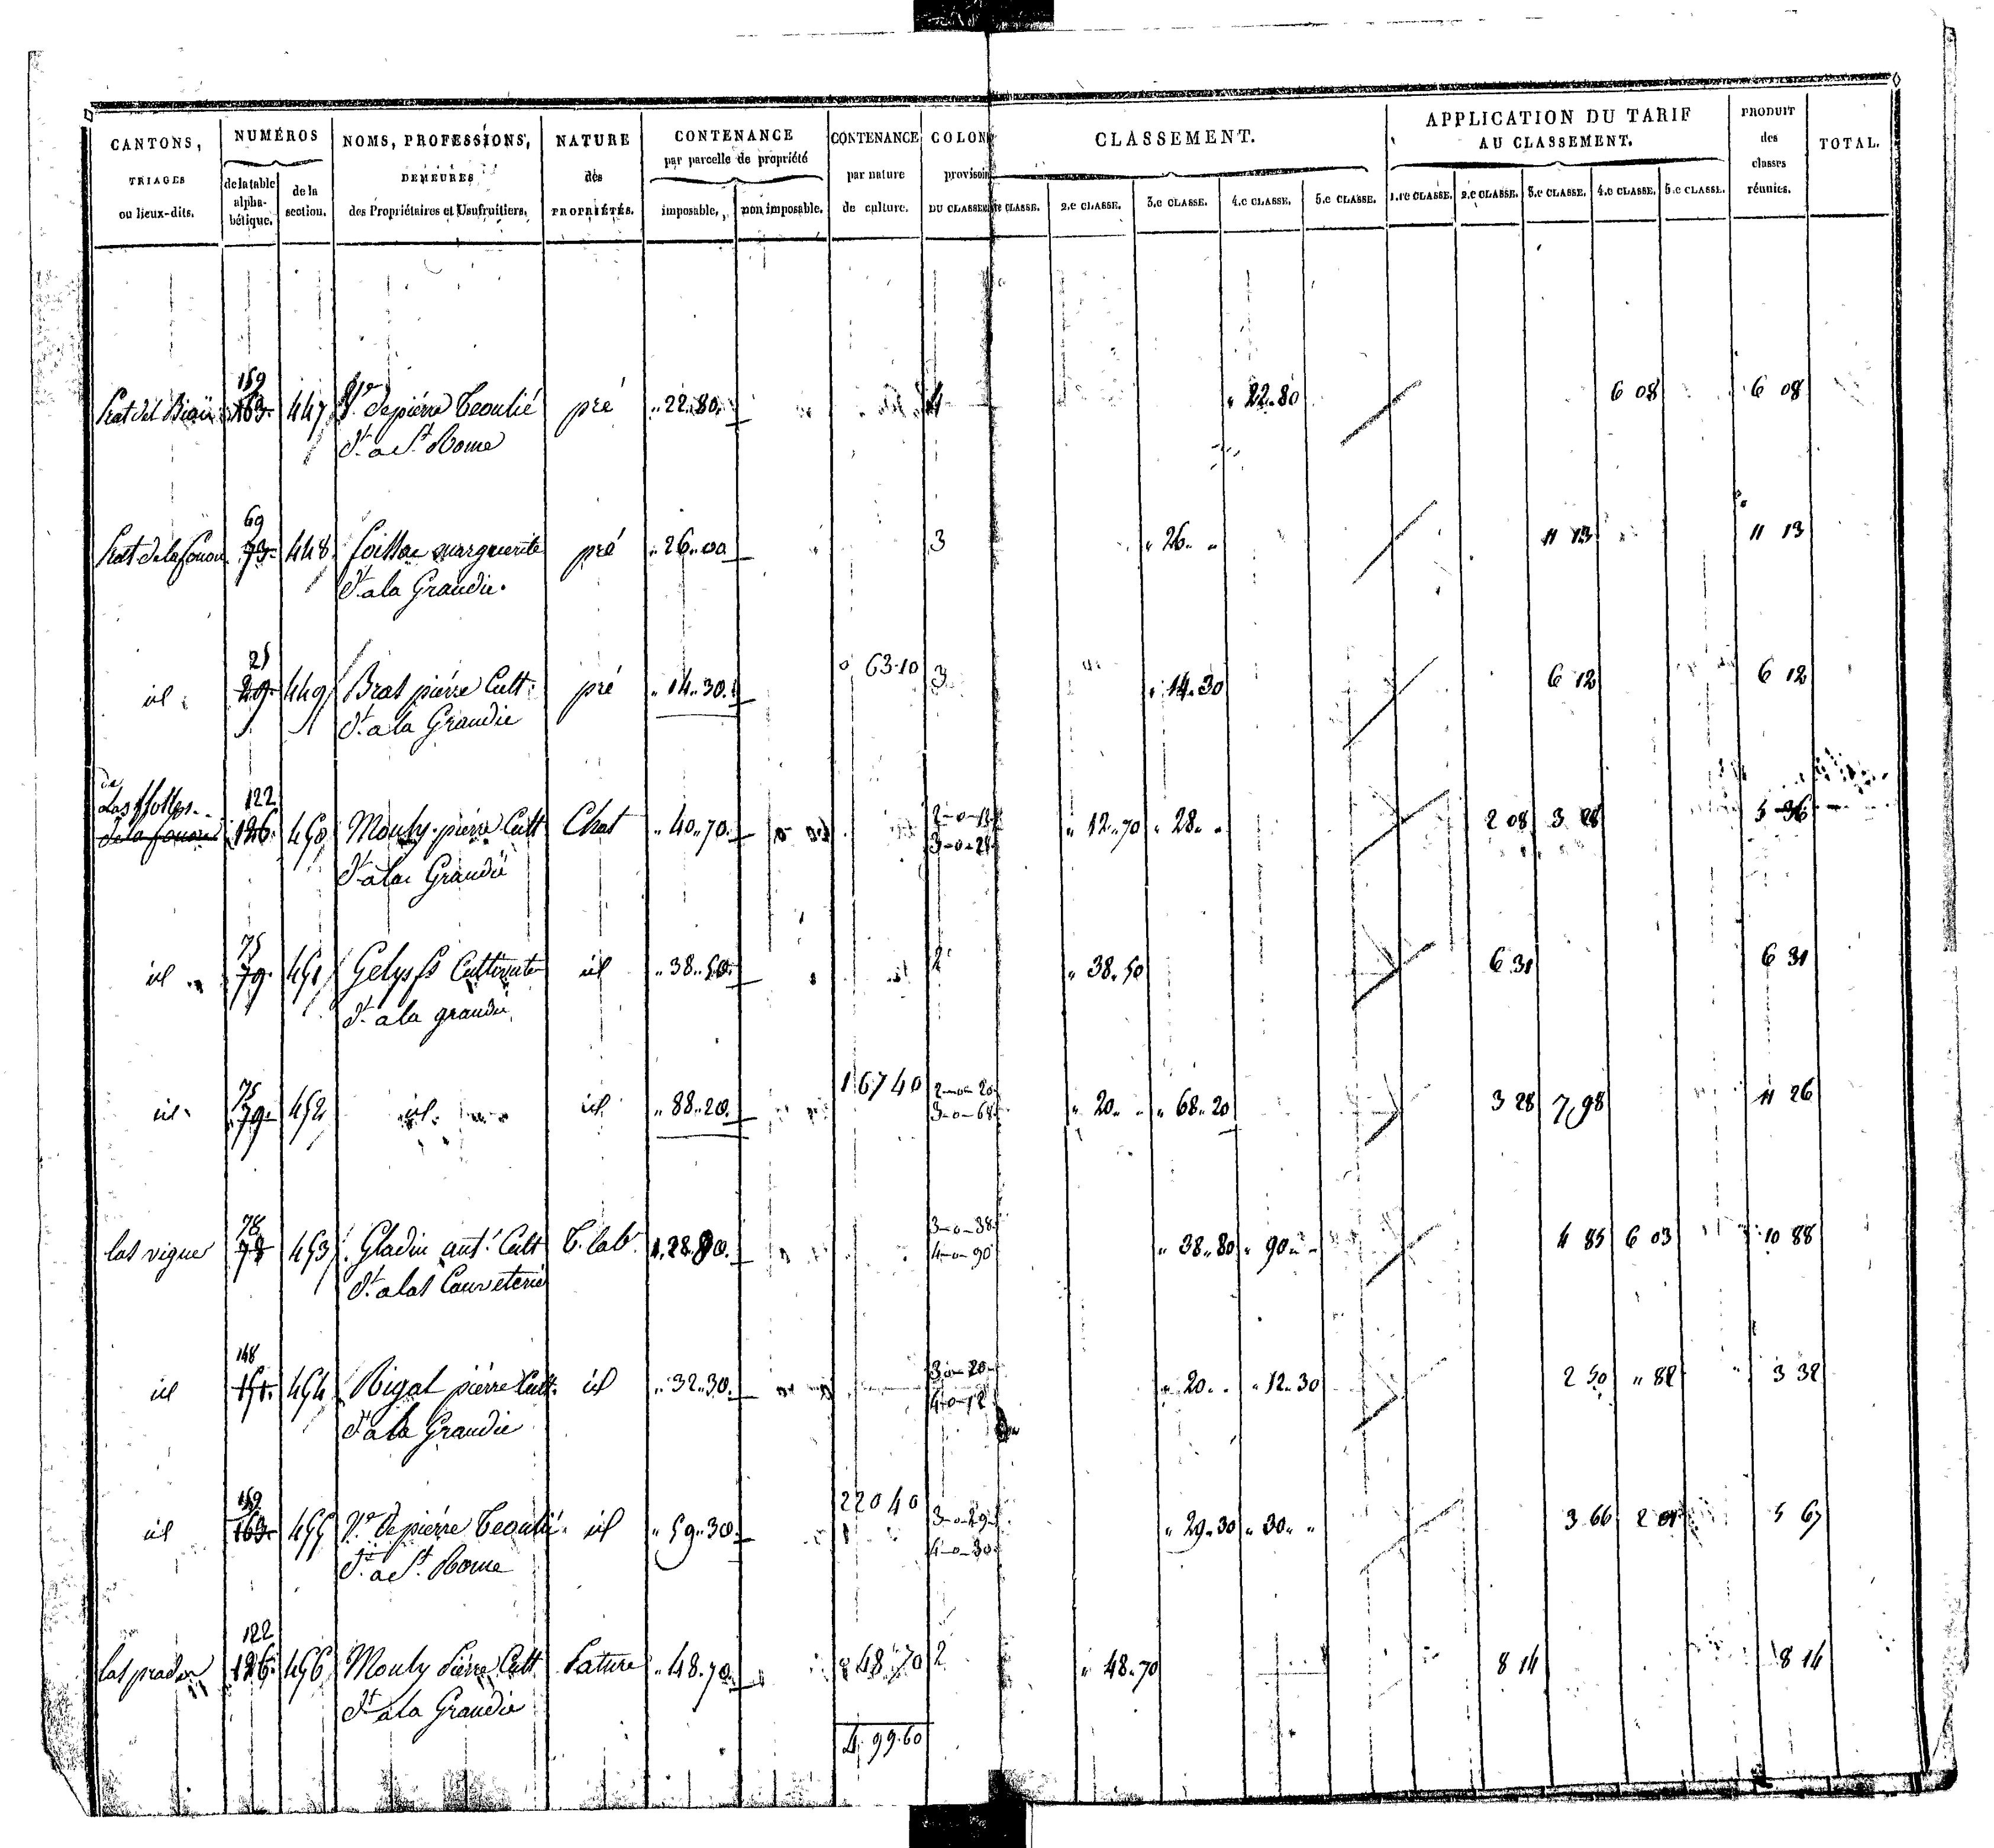 CANTONS, TRIAGES ou lieux-dits. | NUMÉROS de la table alphabétique. | de la section. | NOMS, PROFESSIONS, DEMEURES des Propriétaires et Usufruitiers. | NATURE des PROPRIÉTÉS. | CONTENANCE par parcelle de propriété imposable, | non imposable. | CONTENANCE par nature de culture. | COLON provisoir DU CLASSEM | CLASSEMENT. re CLASSE. | 2.e CLASSE. | 3.e CLASSE. | 4.e CLASSE. | 5.e CLASSE. | APPLICATION DU TARIF AU CLASSEMENT. 1.re CLASSE. | 2.e CLASSE. | 3.e CLASSE. | 4.e CLASSE. | 5.e CLASSE. | PRODUIT des classes réunies. | TOTAL.
159
Prat del 163. 447 Ve de pierre Teoulié pré „ 22..80. 4 „ 22..80 6 08 6 08
dt a St Rome
69
Prat de la fouon 73. 448 foissac marguerite pré „ 26..00 3 „ 26.. „ 11 13 11 13
dt a la Grandie.
25
id. 29. 449 Brat pierre Cult. pré „ 14..30. 0 63-10 3 „ 14..30 6 12 6 12
dt a la Grandie
de
Las 122 2-0-12
de la fouon 126. 450 Mouly pierre Cult Chat „ 40..70. „ 12..70 „ 28.. „ 2 08 3 28 5 36
3-0-28
dt a la Grandie
75
id 79. 451 Gelys fs Cultivateur id „ 38..50. 2 „ 38..50 6 31 6 31
dt a la grandie
75 1 67 40 2-0-20
id. 79. 452 id. id. „ 88..20. 3-0-68 „ 20.. „ „ 68..20 3 28 7,98 11 26
78 3-0-38
las vignes 78 453 Gladin ant. Cult T. lab. 1.28.80. 4-0-90 „ 38..80 „ 90.. „ 4 85 6 03 10 88
dt a las Cauveterie
148 3-0-20
id 151. 454 Rigal pierre Cult. id „ 32..30. 4-0-12 „ 20.. „ „ 12..30 2 50 „ 82 3 32
dt a la Grandie
159 2 20 40 3-0-29
id 163. 455 Ve de pierre Teoulié id „ 59..30. „ 29..30 „ 30.. „ 3 66 2 01 5 67
4-0-30
dt a St Rome
122
las prades 126. 456 Mouly Pierre Cult. Pature „ 48..70. „ 48.70 2 „ 48..70 8 14 8 14
dt a la Grandie
4. 99.60